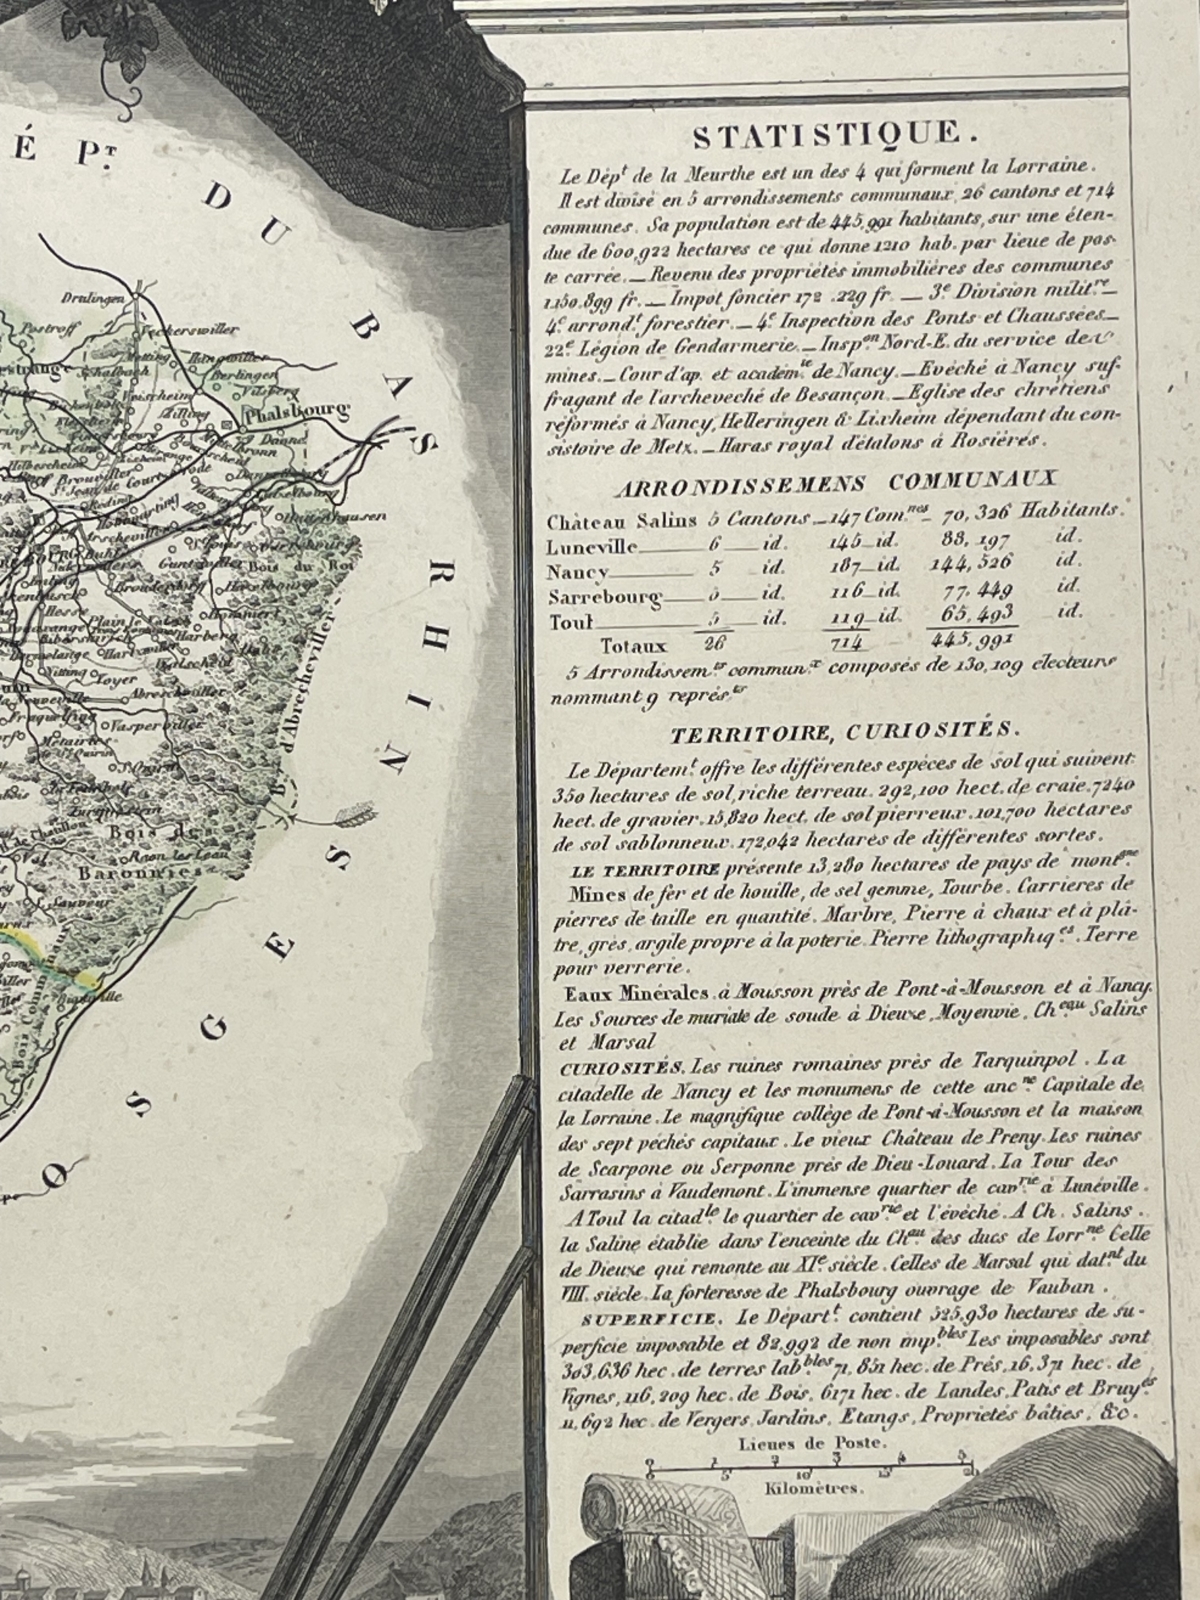 É Pᵀ DU BAS RHIN
VOSGES
Drulingen
Postroff
Veckerswiller
Metting
Hangwiller
Schalbach
Berlingen
Vilsberg
Veischeim
Zilling
Phalsbourg
Danne
Hilbescheim
Brouviller
Sᵗ Jean de Court
Reding
Hommarting
Arscheviller
Hultehausen
Buhl
Guntzviller
Bois du Roi
Imling
Brouderdorff
Hesse
Plaine
Harberg
Bibersкirch
Hartzviller
Walscheid
Nitting
Voyer
Abreschviller
Fraquelfing
Vasperviller
Métairies
Sᵗ Quirin
Sᵗ Quirin
Turquestin
Bois des
Baronnies
Raon les Leau
Val
Bᵗ d'Abrecheviller
Bois Communaux
Bionville
STATISTIQUE.
Le Dépᵗ de la Meurthe est un des 4 qui forment la Lorraine.
Il est divisé en 5 arrondissements communaux, 26 cantons et 714
communes. Sa population est de 445,991 habitants, sur une éten-
due de 600,922 hectares ce qui donne 1210 hab. par lieue de pos-
te carrée.—Revenu des propriétés immobilières des communes
1.150.899 fr.—Impot foncier 172.229 fr.—3ᵉ Division militʳᵉ—
4ᵉ arrondᵗ forestier.—4ᵉ Inspection des Ponts et Chaussées—
22ᵉ Légion de Gendarmerie.—Inspᵒⁿ Nord-E. du service des
mines.—Cour d'ap. et académⁱᵉ de Nancy.—Evéché à Nancy suf-
fragant de l'archeveché de Besançon.—Eglise des chrétiens
réformés à Nancy, Helleringen & Lixheim dépendant du con-
sistoire de Metz.—Haras royal d'étalons à Rosières.
ARRONDISSEMENS COMMUNAUX
Château Salins 5 Cantons—147 Com.ⁿᵉˢ— 70,326 Habitants.
Luneville 6 id. 145 id. 88,197 id.
Nancy 5 id. 187 id. 144,526 id.
Sarrebourg 5 id. 116 id. 77.449 id.
Toul 5 id. 119 id. 65,493 id.
Totaux 26 714 445,991
5 Arrondissem.ᵗˢ commun.ˣ composés de 130,109 électeurs
nommant 9 représ.ᵗˢ
TERRITOIRE, CURIOSITÉS.
Le Départem.ᵗ offre les différentes espèces de sol qui suivent:
350 hectares de sol, riche terreau. 292,100 hect. de craie. 7240
hect. de gravier. 15,820 hect. de sol pierreux. 101,700 hectares
de sol sablonneux. 172,042 hectares de différentes sortes.
LE TERRITOIRE présente 13,280 hectares de pays de montᵍⁿᵉ
Mines de fer et de houille, de sel gemme, Tourbe. Carrieres de
pierres de taille en quantité. Marbre, Pierre à chaux et à plâ-
tre, grès, argile propre à la poterie. Pierre lithographiq.ᵉˢ. Terre
pour verrerie.
Eaux Minérales. à Mousson près de Pont-à-Mousson et à Nancy.
Les Sources de muriate de soude à Dieuze, Moyenvie, Ch.ᵉᵃᵘ Salins
et Marsal
CURIOSITÉS. Les ruines romaines près de Tarquinpol. La
citadelle de Nancy et les monumens de cette anc.ⁿᵉ Capitale de
la Lorraine. Le magnifique collége de Pont-à-Mousson et la maison
des sept péchés capitaux. Le vieux Château de Preny. Les ruines
de Scarpone ou Serponne près de Dieu-Louard. La Tour des
Sarrasins à Vaudemont. L'immense quartier de cavʳⁱᵉ à Lunéville.
A Toul la citad.ˡᵉ le quartier de cavʳⁱᵉ et l'évêché. A Ch. Salins.
la Saline établie dans l'enceinte du Ch.ᵃᵘ des ducs de Lorr.ⁿᵉ Celle
de Dieuze qui remonte au XIᵉ siècle. Celles de Marsal qui dat.ⁿᵗ du
VIII. siècle. La forteresse de Phalsbourg ouvrage de Vauban.
SUPERFICIE. Le Départ.ᵗ contient 525,930 hectares de su-
perficie imposable et 82,992 de non imp.ᵇˡᵉˢ Les imposables sont
303,636 hec. de terres lab.ᵇˡᵉˢ 71,851 hec. de Prés, 16,371 hec. de
Vignes, 116,209 hec. de Bois, 6171 hec. de Landes, Patis et Bruy.ᵉˢ
11,692 hec. de Vergers, Jardins, Etangs, Proprietés bâties, &c.
Lieues de Poste.
0 1 2 3 4 5
5 10 15 20
Kilomètres.